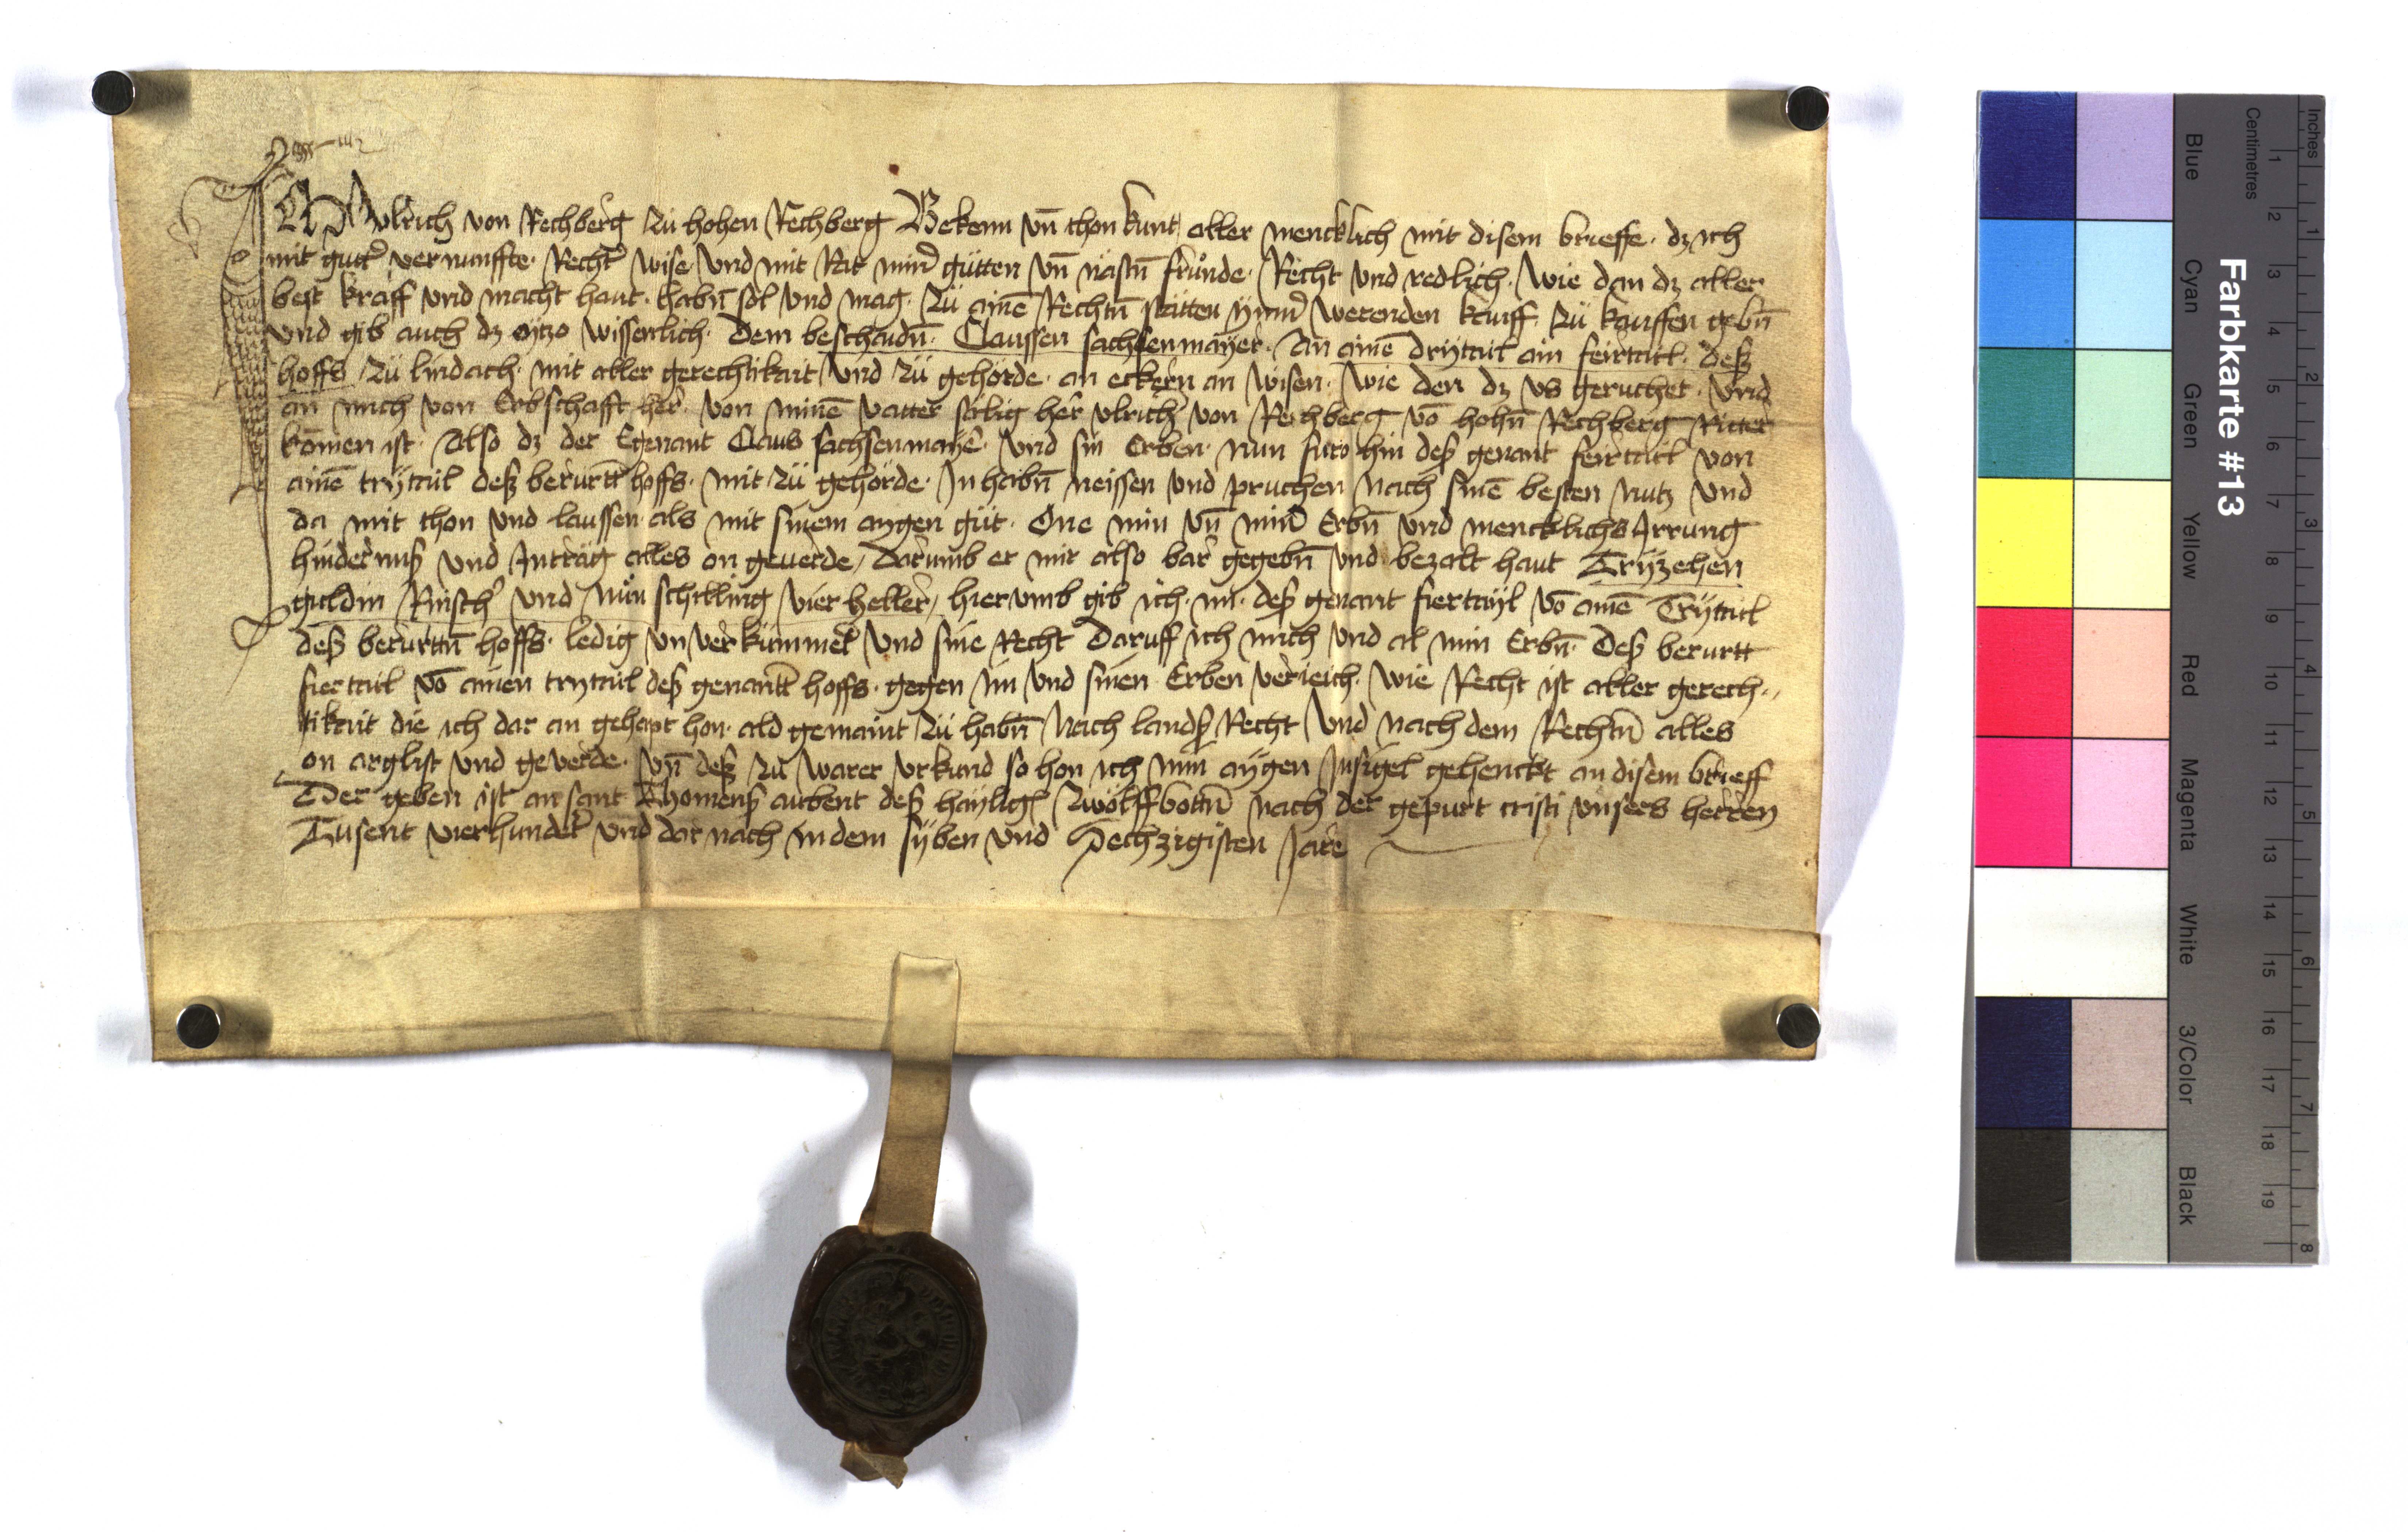 Ich Vlrich von Rechberg zu hohen Rechberg Bekenn vn̄ thon kunt aller mencklich mit disem brieffe · dz ich
mit gutt' vernunffte · Recht' wise vnd mit Rat min' gütten vn̄ nästn̄ fründe · Recht vnd redlich · wie dan dz aller
best kraff vnd macht haut · habn̄ sol vnd mag · zü ainē Rechtn̄ stätten ÿmm' werenden kauff · zü kauffen gebn̄
vnd gib auch dz ytzo wissenlich · dem beschaidn̄ · Claussen sachssenmayer · An ainē drÿtail ain feirtail · deß
hoffs zü lindach · mit aller gerechtikait vnd zü gehörde · an eckern an wisen · wie den dz vs geruchet · vnd
an mich von Erbschafft her · von minē vatter sälig her vlrich von Rechberg vō hohn̄ Rechberg Ritter
komen ist · Also dz der Egenant Claus sachsenmayer · vnd sin Erben · nun furo hin deß genant feirtail von
ainē trÿtail deß berurtt hoffs · mit zü gehörde · Jn habn̄ neissen vnd pruchen nach sinē besten nutz vnd
da mit thon vnd laussen als mit sinem aygen güt · One min vn̄ min' Erbn̄ vnd mencklichs Jrrung
hindernuß vnd Jnträg alles on geuerde / Darumb er mir also bar gegebn̄ vnd bezalt haut Trÿzehen
guldin Rinisch' vnd Nün schilling vier heller / hierumb gib ich · im · deß genant fiertayl vō ainē Trÿtail
deß berurttn̄ hoffs · ledig vnverkümmert vnd sine Recht Daruff ich mich vnd al min Erbn̄ · Deß berurtt
fiertail vō ainen trytail deß genantt hoffs · gegen im vnd sinen Erben verieich · wie Recht ist aller gerech-
tikait die ich dar an gehapt hon · ald gemaint zü habn̄ nach landß Recht vnd nach dem Rechtn̄ alles
on arglist vnd geverde · vn̄ deß zu warer vrkund so hon ich min aÿgen Jnsigel gehenckt an disem brieff
Der geben ist an sant Thomenß aubent deß haÿlig' zwölffbottn̄ nach der gepurt cristi vnsers herren
Tusent vierhundert vnd dar nach in dem sÿben vnd Sechzigisten Jare
Farbkarte #13
Blue Cyan Green Yellow Red Magenta White 3/Color Black
Centimetres
1 2 3 4 5 6 7 8 9 10 11 12 13 14 15 16 17 18 19
Inches
1 2 3 4 5 6 7 8